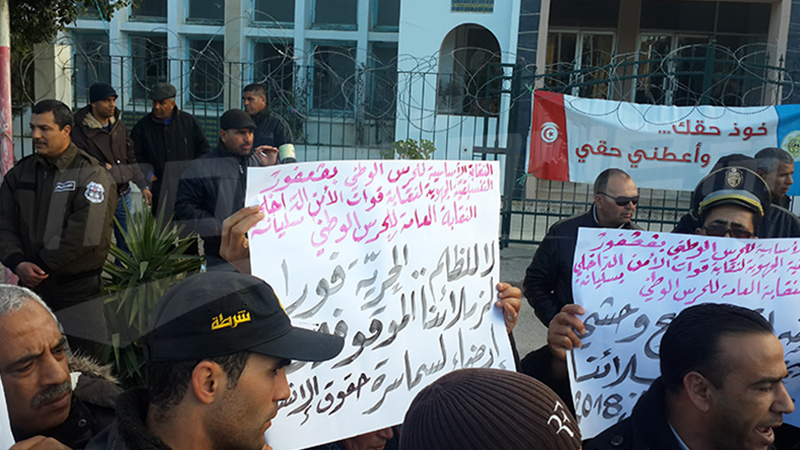 خوذ حقك...
وأعطني حقي
النقابة الأساسية للحرس الوطني بقعفور
التنسيقية الجهوية لنقابة قوات الأمن الداخلي بسليانة
النقابة العامة للحرس الوطني
لا للظلم.. الحرية فورا
لزملائنا الموقوفين
إرضاء لسماسرة حقوق الإنسان
الأساسية للحرس الوطني بقعفور
الجهوية لنقابة قوات الأمن الداخلي بسليانة
نقابة العامة للحرس الوطني
وحشي
2018
شرطة